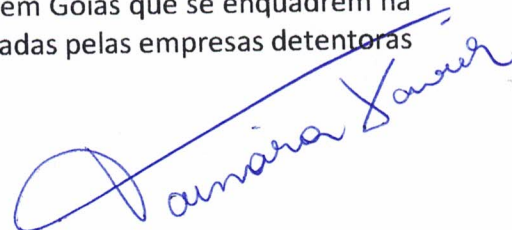 em Goiás que se enquadrem na
adas pelas empresas detentoras
Tamára Xavier